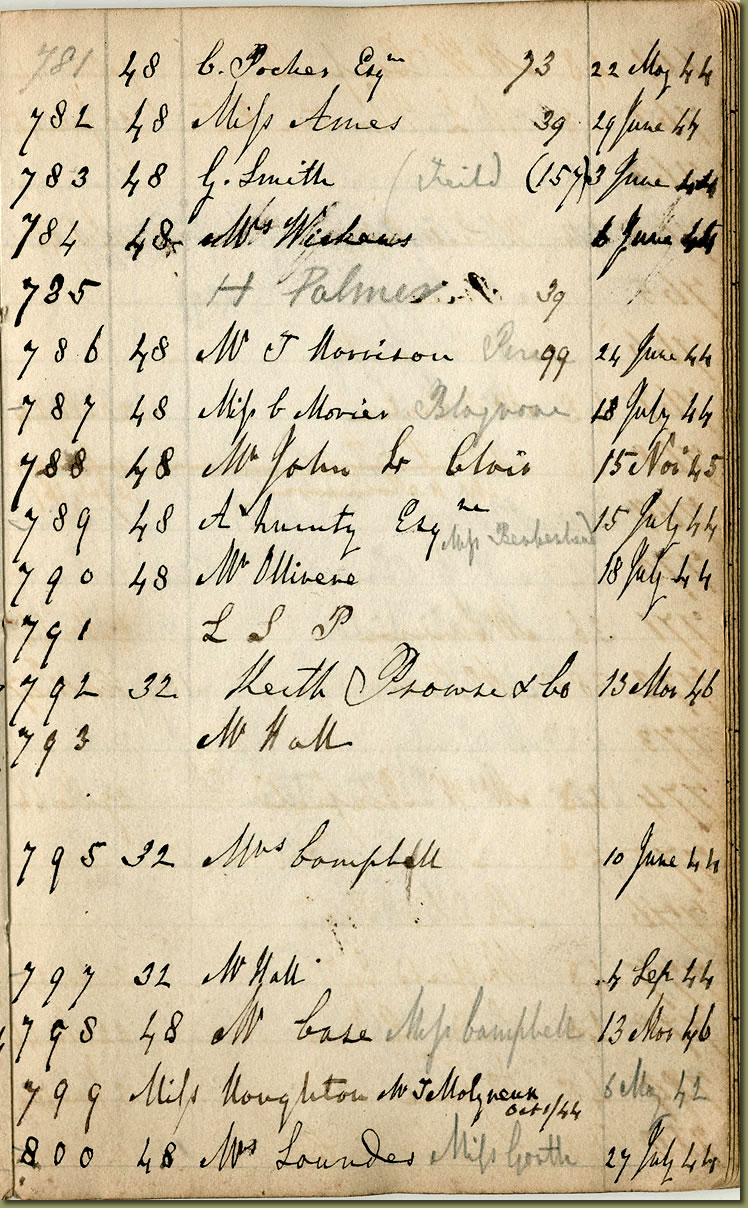 781 48 C. Pocher Esqre 73 22 May 44
782 48 Miss Ames 39 29 June 44
783 48 G. Smith (Feild) (157) 3 June 44
784 48 Mrs Wickens 6 June 44
785 H Palmer 39
786 48 Mr T Morrison 99 24 June 44
787 48 Miss C Morier Blagrove 18 July 44
788 48 Mr John St Clair 15 Nov 45
789 48 A Esqre 15 July 44
Miss
790 48 Mr Ollivere 18 July 44
791 L S P
792 32 Keith Prowse & Co 13 Mar 46
793 Mr Hall
795 32 Mrs Campbell 10 June 44
797 32 Mr Hall 4 Sep 44
798 48 Mr Case Miss Campbell 13 Mar 46
799 Miss Houghton Mr T Molyneux 6 May 42
Oct 1/44
800 48 Mrs Lowndes Miss 27 July 44